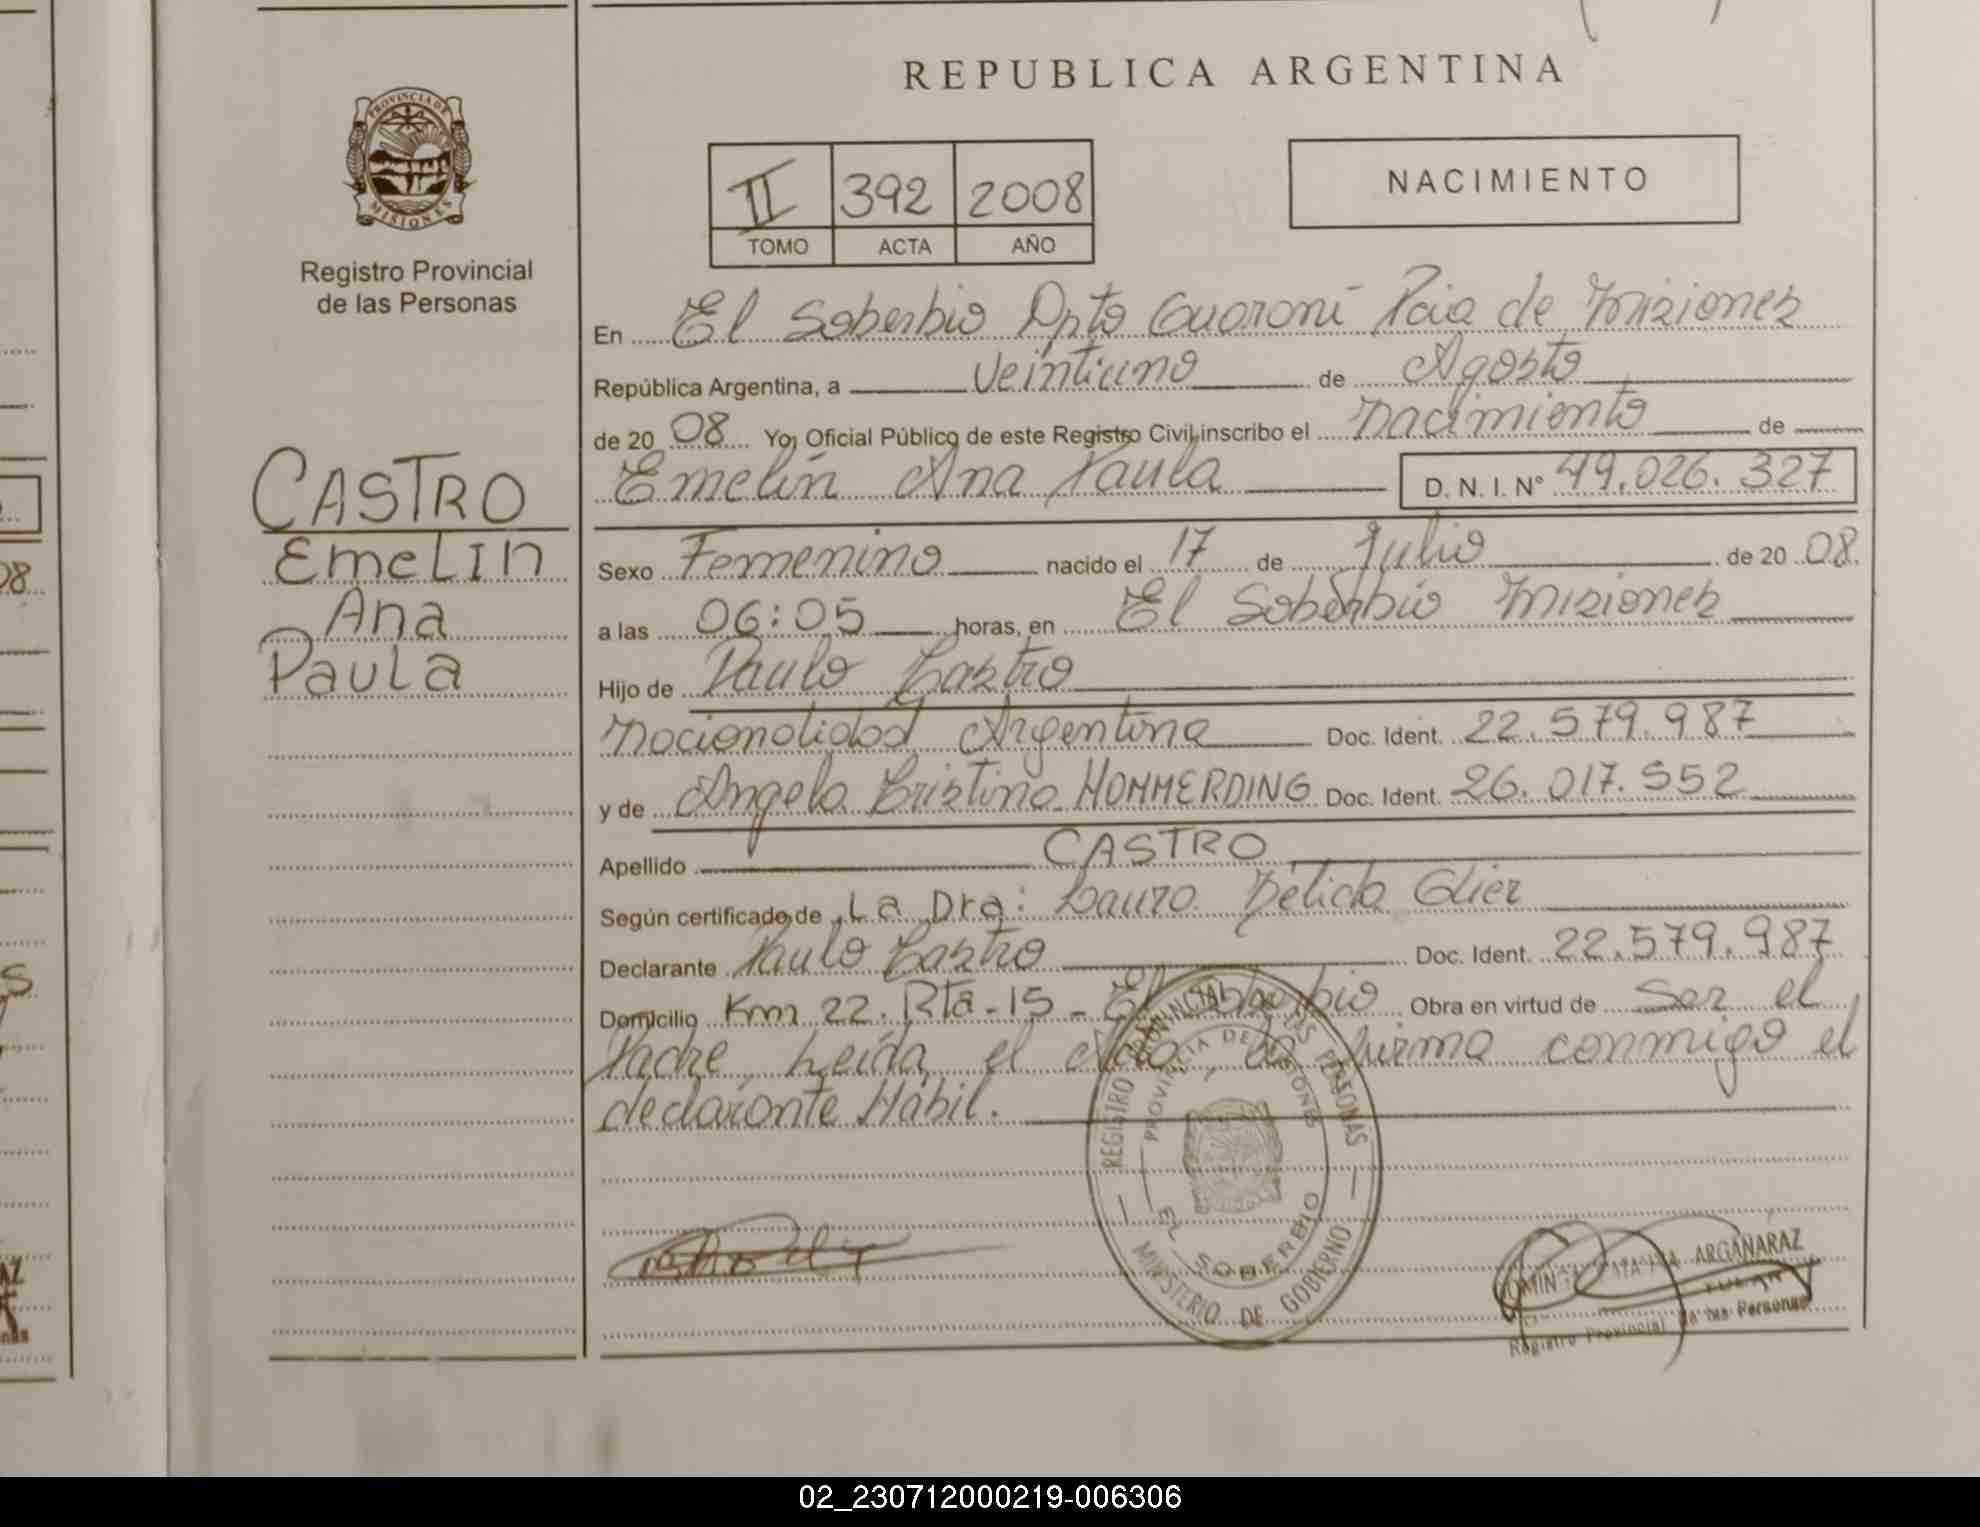 REPUBLICA ARGENTINA
PROVINCIA DE
MISIONES
Registro Provincial
de las Personas
II 392 2008
TOMO ACTA AÑO
NACIMIENTO
CASTRO
EmeLIn
Ana
PauLa
En El Soberbio Dpto Guaraní Pcia de Misiones
República Argentina, a veintiuno de Agosto
de 20 08 Yo, Oficial Público de este Registro Civil inscribo el nacimiento de
Emelin Ana Paula D. N. I. Nº 49.026.327
Sexo Femenino nacido el 17 de Julio de 20 08.
a las 06:05 horas, en El Soberbio Misiones
Hijo de Paulo Castro
Nacionalidad Argentina Doc. Ident. 22.579.987
y de Angela Cristina HOMMERDING Doc. Ident. 26.017.552
Apellido CASTRO
Según certificado de La Dra: Laura Délida Glier
Declarante Paulo Castro Doc. Ident. 22.579.987
Domicilio Km 22. Rta-15 - El Soberbio Obra en virtud de Ser el
Padre, Leída el Acta, la firma conmigo el
declarante Hábil.
REGISTRO PROVINCIAL DE LAS PERSONAS
PROVINCIA DE MISIONES
EL SOBERBIO
MINISTERIO DE GOBIERNO
ARGAÑARAZ
Registro Provincial de las Personas
08
02_230712000219-006306